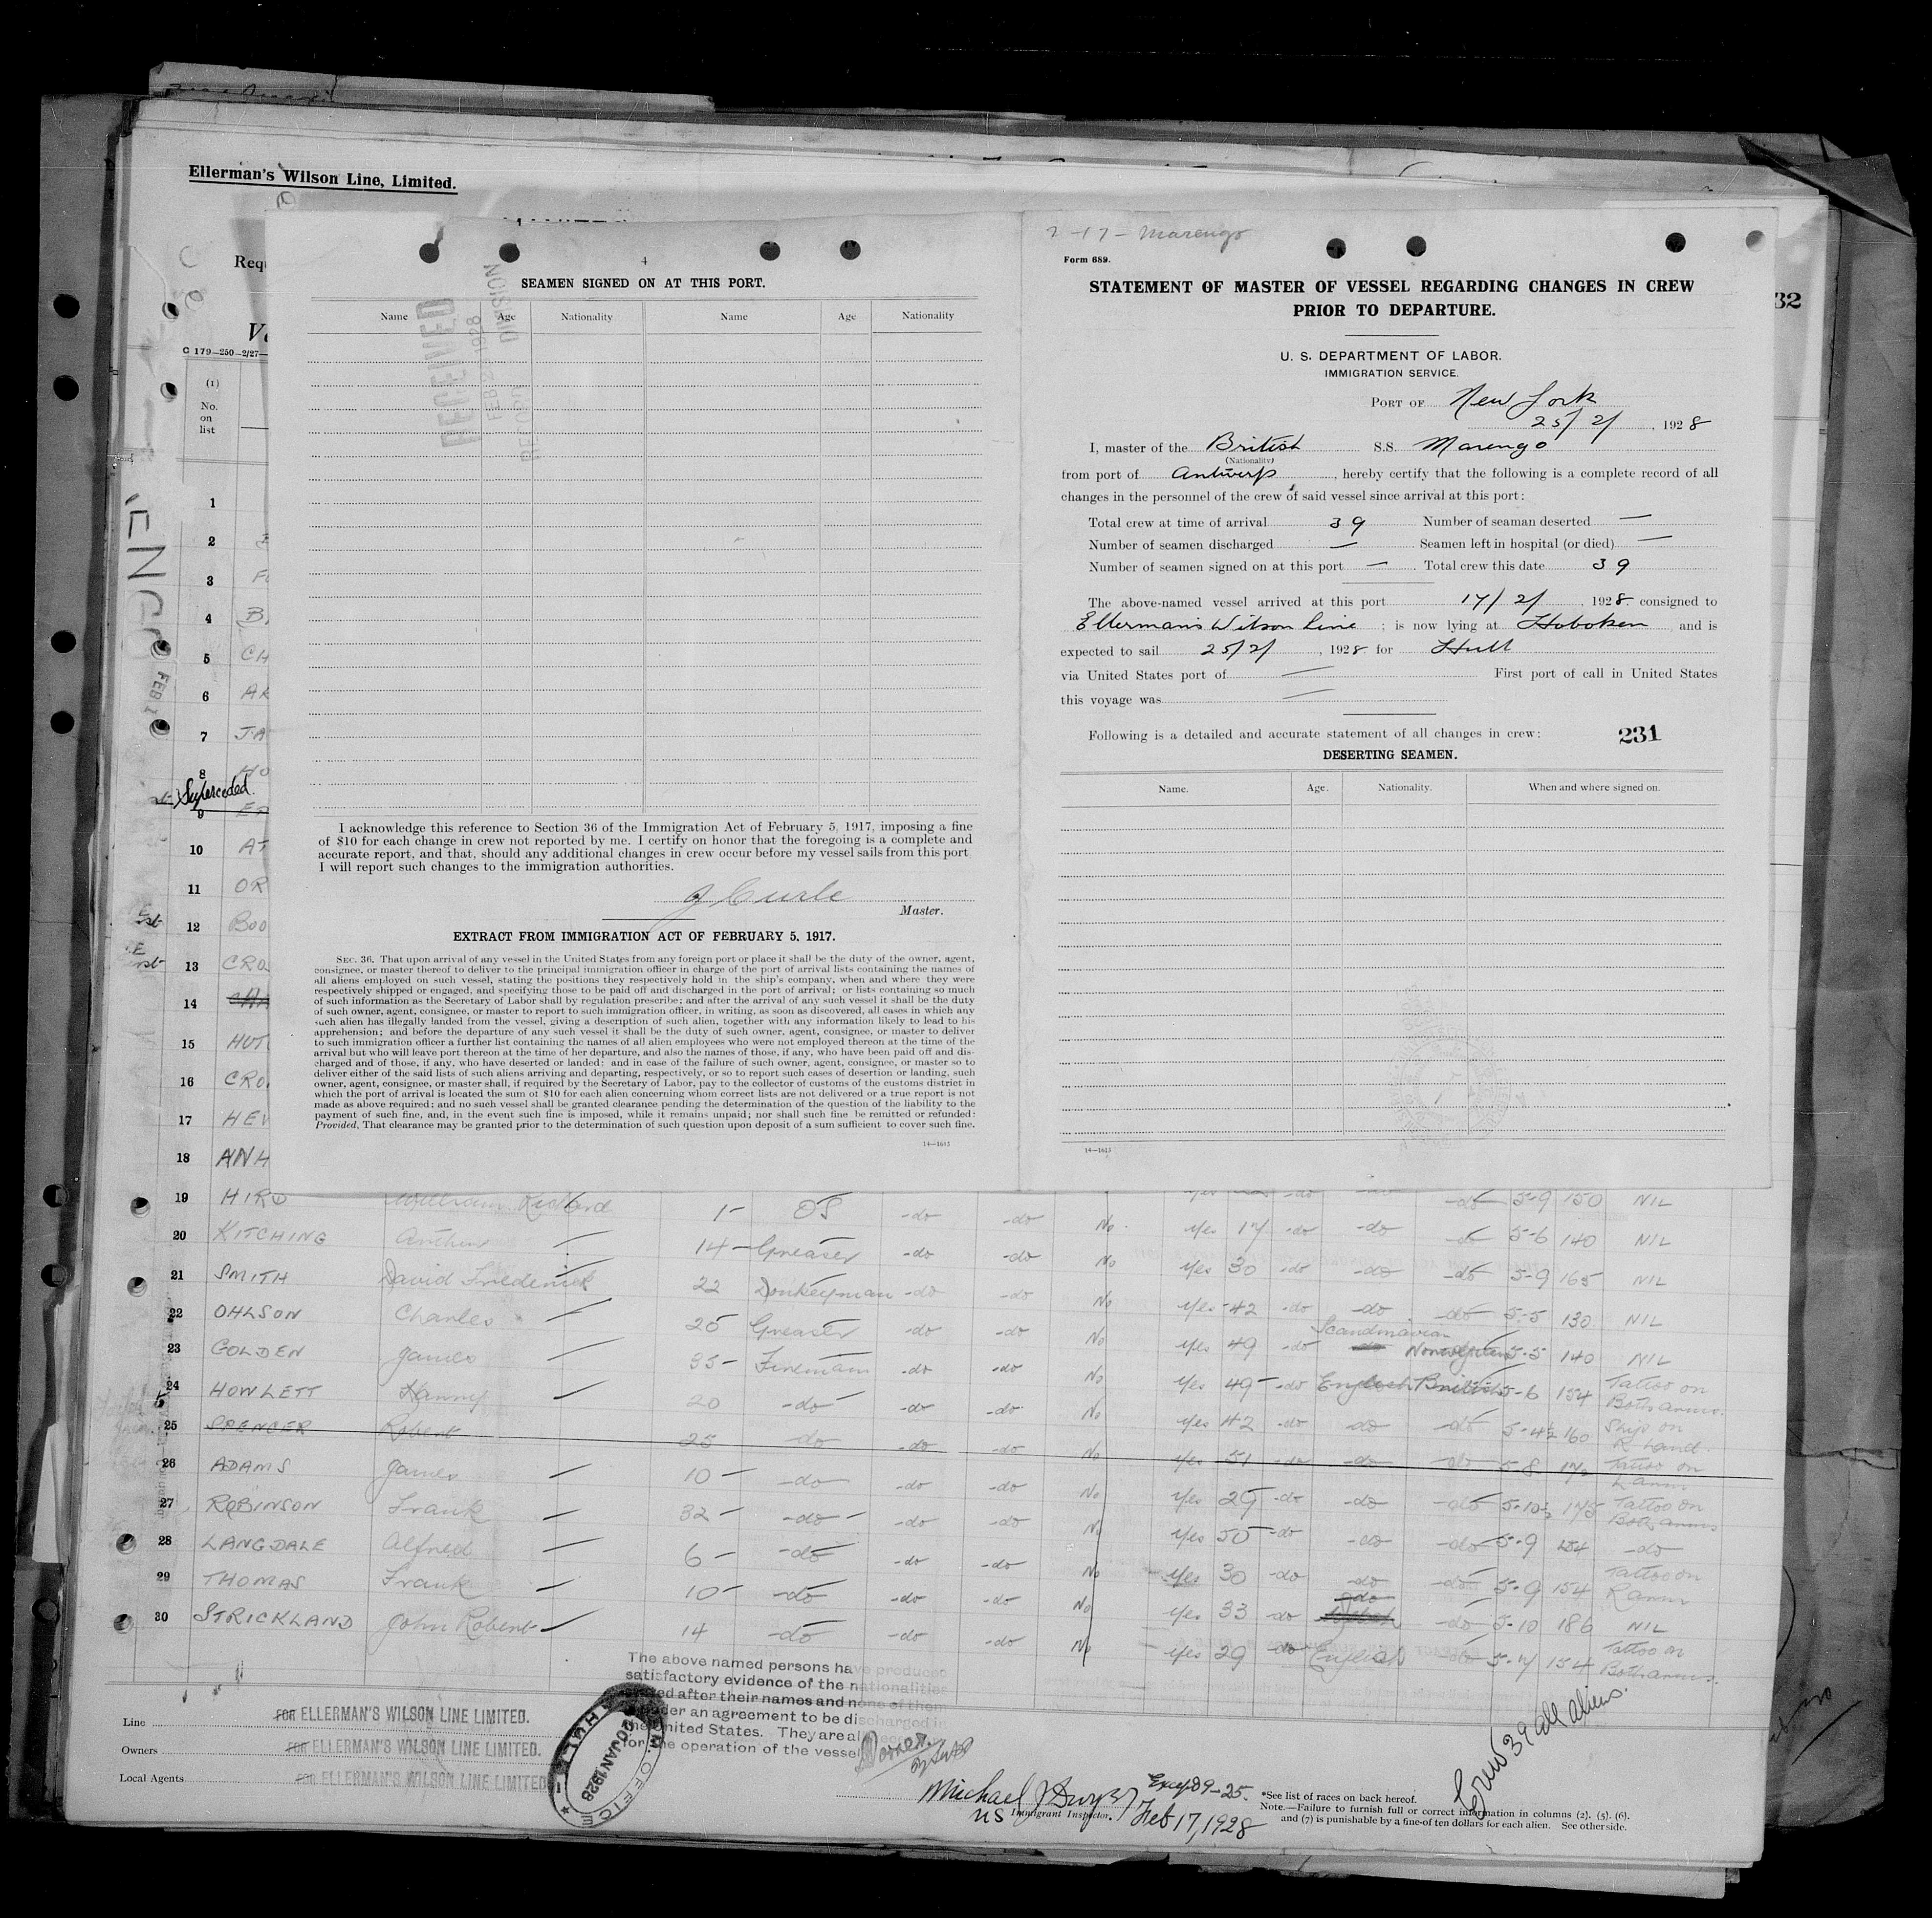 Ellerman's Wilson Line, Limited.
C 179—250—2/27
(1)
No.
on
list
32
4
SEAMEN SIGNED ON AT THIS PORT.
Name Age Nationality Name Age Nationality
RECEIVED
FEB 2 1928
DIVISION
I acknowledge this reference to Section 36 of the Immigration Act of February 5, 1917, imposing a fine
of $10 for each change in crew not reported by me. I certify on honor that the foregoing is a complete and
accurate report, and that, should any additional changes in crew occur before my vessel sails from this port
I will report such changes to the immigration authorities.
J Curle
Master.
EXTRACT FROM IMMIGRATION ACT OF FEBRUARY 5, 1917.
SEC. 36. That upon arrival of any vessel in the United States from any foreign port or place it shall be the duty of the owner, agent,
consignee, or master thereof to deliver to the principal immigration officer in charge of the port of arrival lists containing the names of
all aliens employed on such vessel, stating the positions they respectively hold in the ship's company, when and where they were
respectively shipped or engaged, and specifying those to be paid off and discharged in the port of arrival; or lists containing so much
of such information as the Secretary of Labor shall by regulation prescribe; and after the arrival of any such vessel it shall be the duty
of such owner, agent, consignee, or master to report to such immigration officer, in writing, as soon as discovered, all cases in which any
such alien has illegally landed from the vessel, giving a description of such alien, together with any information likely to lead to his
apprehension; and before the departure of any such vessel it shall be the duty of such owner, agent, consignee, or master to deliver
to such immigration officer a further list containing the names of all alien employees who were not employed thereon at the time of the
arrival but who will leave port thereon at the time of her departure, and also the names of those, if any, who have been paid off and dis-
charged and of those, if any, who have deserted or landed; and in case of the failure of such owner, agent, consignee, or master so to
deliver either of the said lists of such aliens arriving and departing, respectively, or so to report such cases of desertion or landing, such
owner, agent, consignee, or master shall, if required by the Secretary of Labor, pay to the collector of customs of the customs district in
which the port of arrival is located the sum of $10 for each alien concerning whom correct lists are not delivered or a true report is not
made as above required; and no such vessel shall be granted clearance pending the determination of the question of the liability to the
payment of such fine, and, in the event such fine is imposed, while it remains unpaid; nor shall such fine be remitted or refunded:
Provided, That clearance may be granted prior to the determination of such question upon deposit of a sum sufficient to cover such fine.
14—1613
2-17- Marengo
Form 689.
STATEMENT OF MASTER OF VESSEL REGARDING CHANGES IN CREW
PRIOR TO DEPARTURE.
U. S. DEPARTMENT OF LABOR.
IMMIGRATION SERVICE.
PORT OF New York
25/2/, 1928
I, master of the British S.S. Marengo
(Nationality)
from port of Antwerp, hereby certify that the following is a complete record of all
changes in the personnel of the crew of said vessel since arrival at this port:
Total crew at time of arrival 39 Number of seaman deserted —
Number of seamen discharged — Seamen left in hospital (or died) —
Number of seamen signed on at this port — Total crew this date 39
The above-named vessel arrived at this port 17/2/, 1928. consigned to
Ellermans Wilson Line; is now lying at Hoboken and is
expected to sail 25/2/, 1928 for Hull
via United States port of — First port of call in United States
this voyage was —
Following is a detailed and accurate statement of all changes in crew: 231
DESERTING SEAMEN.
Name. Age. Nationality. When and where signed on.
14—1613
1
2
3
4
5 CH
6 AR
7 JA
8 HO
Superceded.
9
10 AT
11 OR
12 BOO
13 CRO
14
15 HUT
16 CRO
17 HEW
18 ANH
19 HIRD William Richard 1- OS -do -do No Yes 17 -do -do -do 5-9 150 NIL
20 KITCHING Arthur 14- Greaser -do -do No Yes 30 -do -do -do 5-6 140 NIL
21 SMITH David Frederick 22 Donkeyman -do -do No Yes 42 -do -do -do 5-9 165 NIL
22 OHLSON Charles 25 Greaser -do -do No Yes 49 -do Scandinavian Norwegian 5-5 130 NIL
23 GOLDEN James 35- Fireman -do -do No Yes 49 -do English British 5-5 140 NIL
24 HOWLETT Harry 20 -do -do -do No Yes 42 -do -do -do 5-6 154 Tattoo on Both arms.
25 SPENCER Robert 25 -do -do -do No Yes 51 -do -do -do 5-4½ 160 Ship on R hand.
26 ADAMS James 10- -do -do -do No Yes 29 -do -do -do 5-8 Tattoo on
27 ROBINSON Frank 32- -do- -do -do No Yes 50 -do -do -do 5-10½ 175 Tattoo on Both arms
28 LANGDALE Alfred 6- -do -do -do No Yes 30 -do -do -do 5-9 154 -do
29 THOMAS Frank 10- -do -do -do No Yes 33 -do -do -do 5-9 154 Tattoo on R arm
30 STRICKLAND John Robert 14 -do -do -do No Yes 29 -do English -do 5-10 186 NIL
5-7 154 Tattoo on Both arms.
The above named persons have produced
satisfactory evidence of the nationalities
stated after their names and none of them
under an agreement to be discharged in
the United States. They are all
for the operation of the vessel
HULL
20 JAN 1928
IMM. OFFICE
Line FOR ELLERMAN'S WILSON LINE LIMITED.
Owners FOR ELLERMAN'S WILSON LINE LIMITED.
Local Agents FOR ELLERMAN'S WILSON LINE LIMITED
Michael J Dwyer Except 9-25.
US Immigrant Inspector. Feb 17, 1928
Crew 39 all aliens.
*See list of races on back hereof.
Note.—Failure to furnish full or correct information in columns (2). (5). (6).
and (7) is punishable by a fine of ten dollars for each alien. See other side.